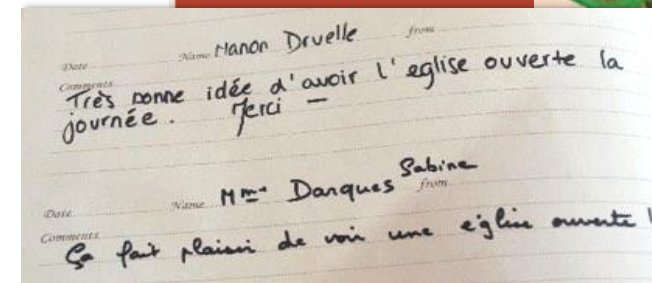 Date Name Manon Druelle from
Comments
Très bonne idée d'avoir l'eglise ouverte la
journée. Merci —
Date Name Mme Danques Sabine from
Comments
Ça fait plaisir de voir une église ouverte !